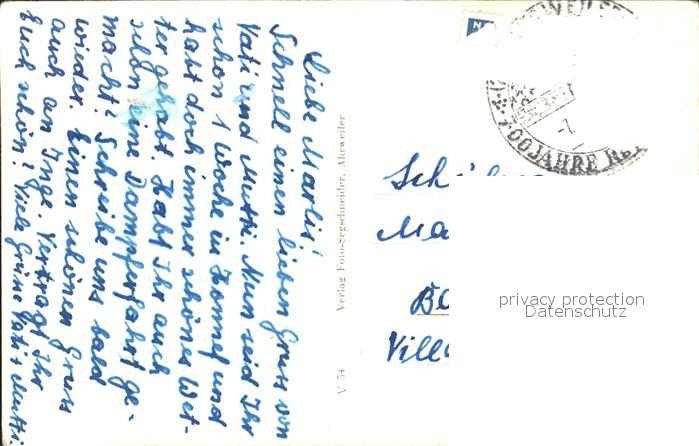 Liebe Marlis!
Schnell einen lieben Gruss von
Vati und Mutti. Nun seid Ihr
schon 1 Woche in Honnef und
habt doch immer schönes Wet-
ter gehabt. Habt Ihr auch
schön eine Dampferfahrt ge-
macht? Schreibe uns bald
wieder. Einen schönen Gruss
auch an Inge. Vertragt Ihr
Euch schön? Viele Grüsse Vati u Mutti
Verlag Foto-Segschneider, Ahrweiler
V 54
700 JAHRE
Sch
Ma
Bo
Vill
privacy protection
Datenschutz